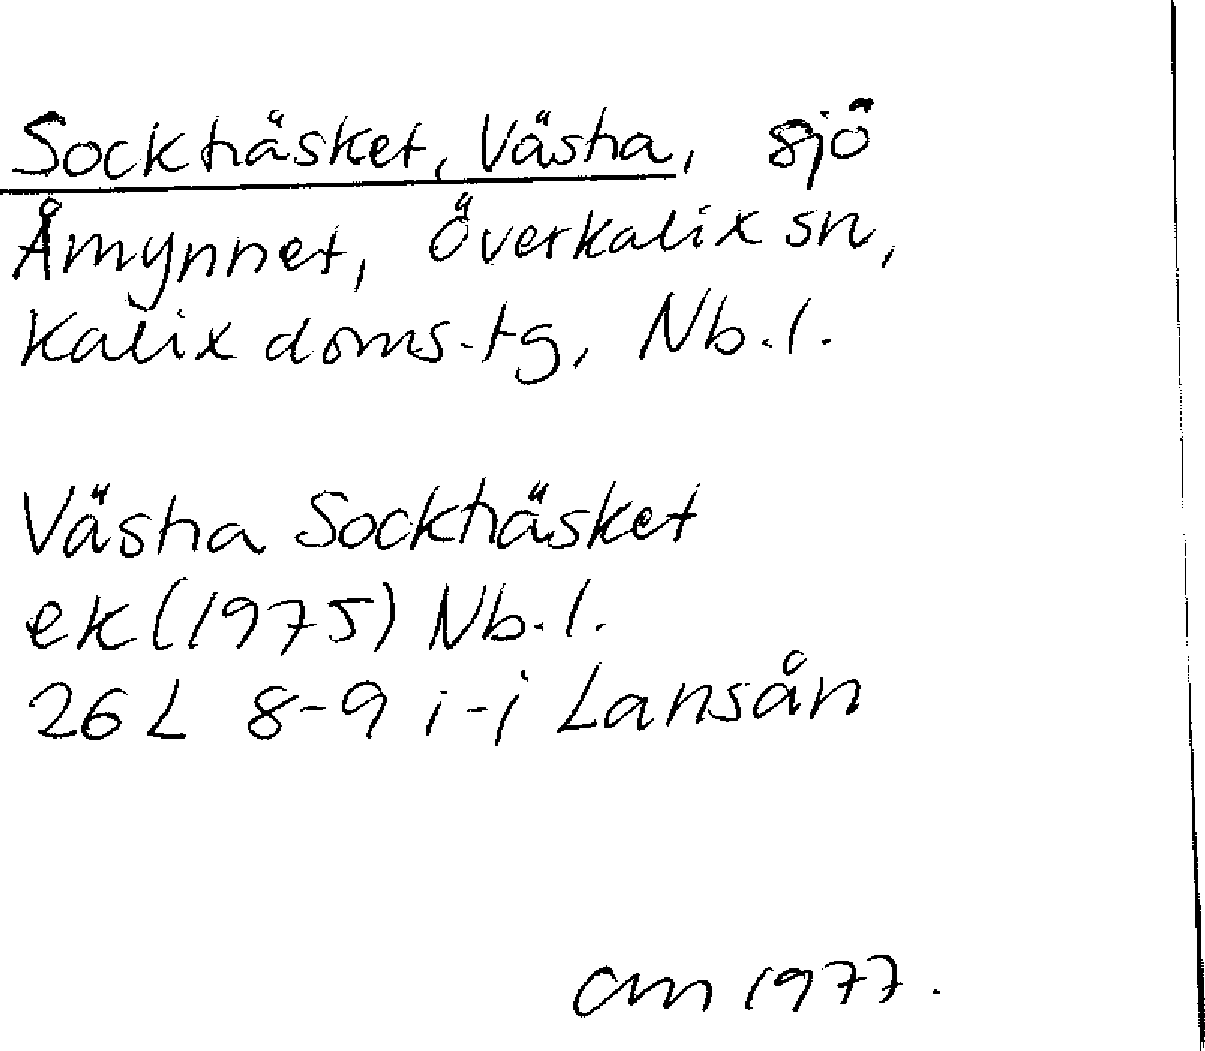 Sockträsket, Västra, sjö
Åmynnet, Överkalix sn,
Kalix doms.tg, Nb.l.
Västra Sockträsket
ek (1975) Nb.l.
26 L 8-9 i-j Lansån
am 1977.